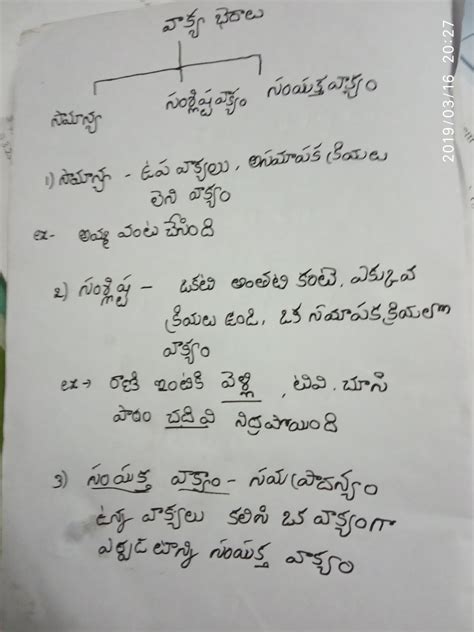 వాక్య భేదాలు
2019/03/16 20:27
సామాన్య
సంశ్లిష్ట వాక్యం
సంయుక్త వాక్యం
1) సామాన్య - ఉప వాక్యలు, అసమాపక క్రియలు
లేని వాక్యం
ex- అమ్మ వంట చేసింది
2) సంశ్లిష్ట - ఒకటి అంతటి కంటే, ఎక్కువ
క్రియలు ఉండి, ఒక సమాపక క్రియలగా
వాక్యం
ex → రాణి ఇంటికి వెళ్లి, టివి. చూసి
పాఠం చదివి నిద్రపోయింది
3) సంయుక్త వాక్యాం - సమ ప్రాదాన్యం
ఉన్న వాక్యలు కలిసి ఒక వాక్యంగా
ఏర్పడటాన్ని సంయుక్త వాక్యం